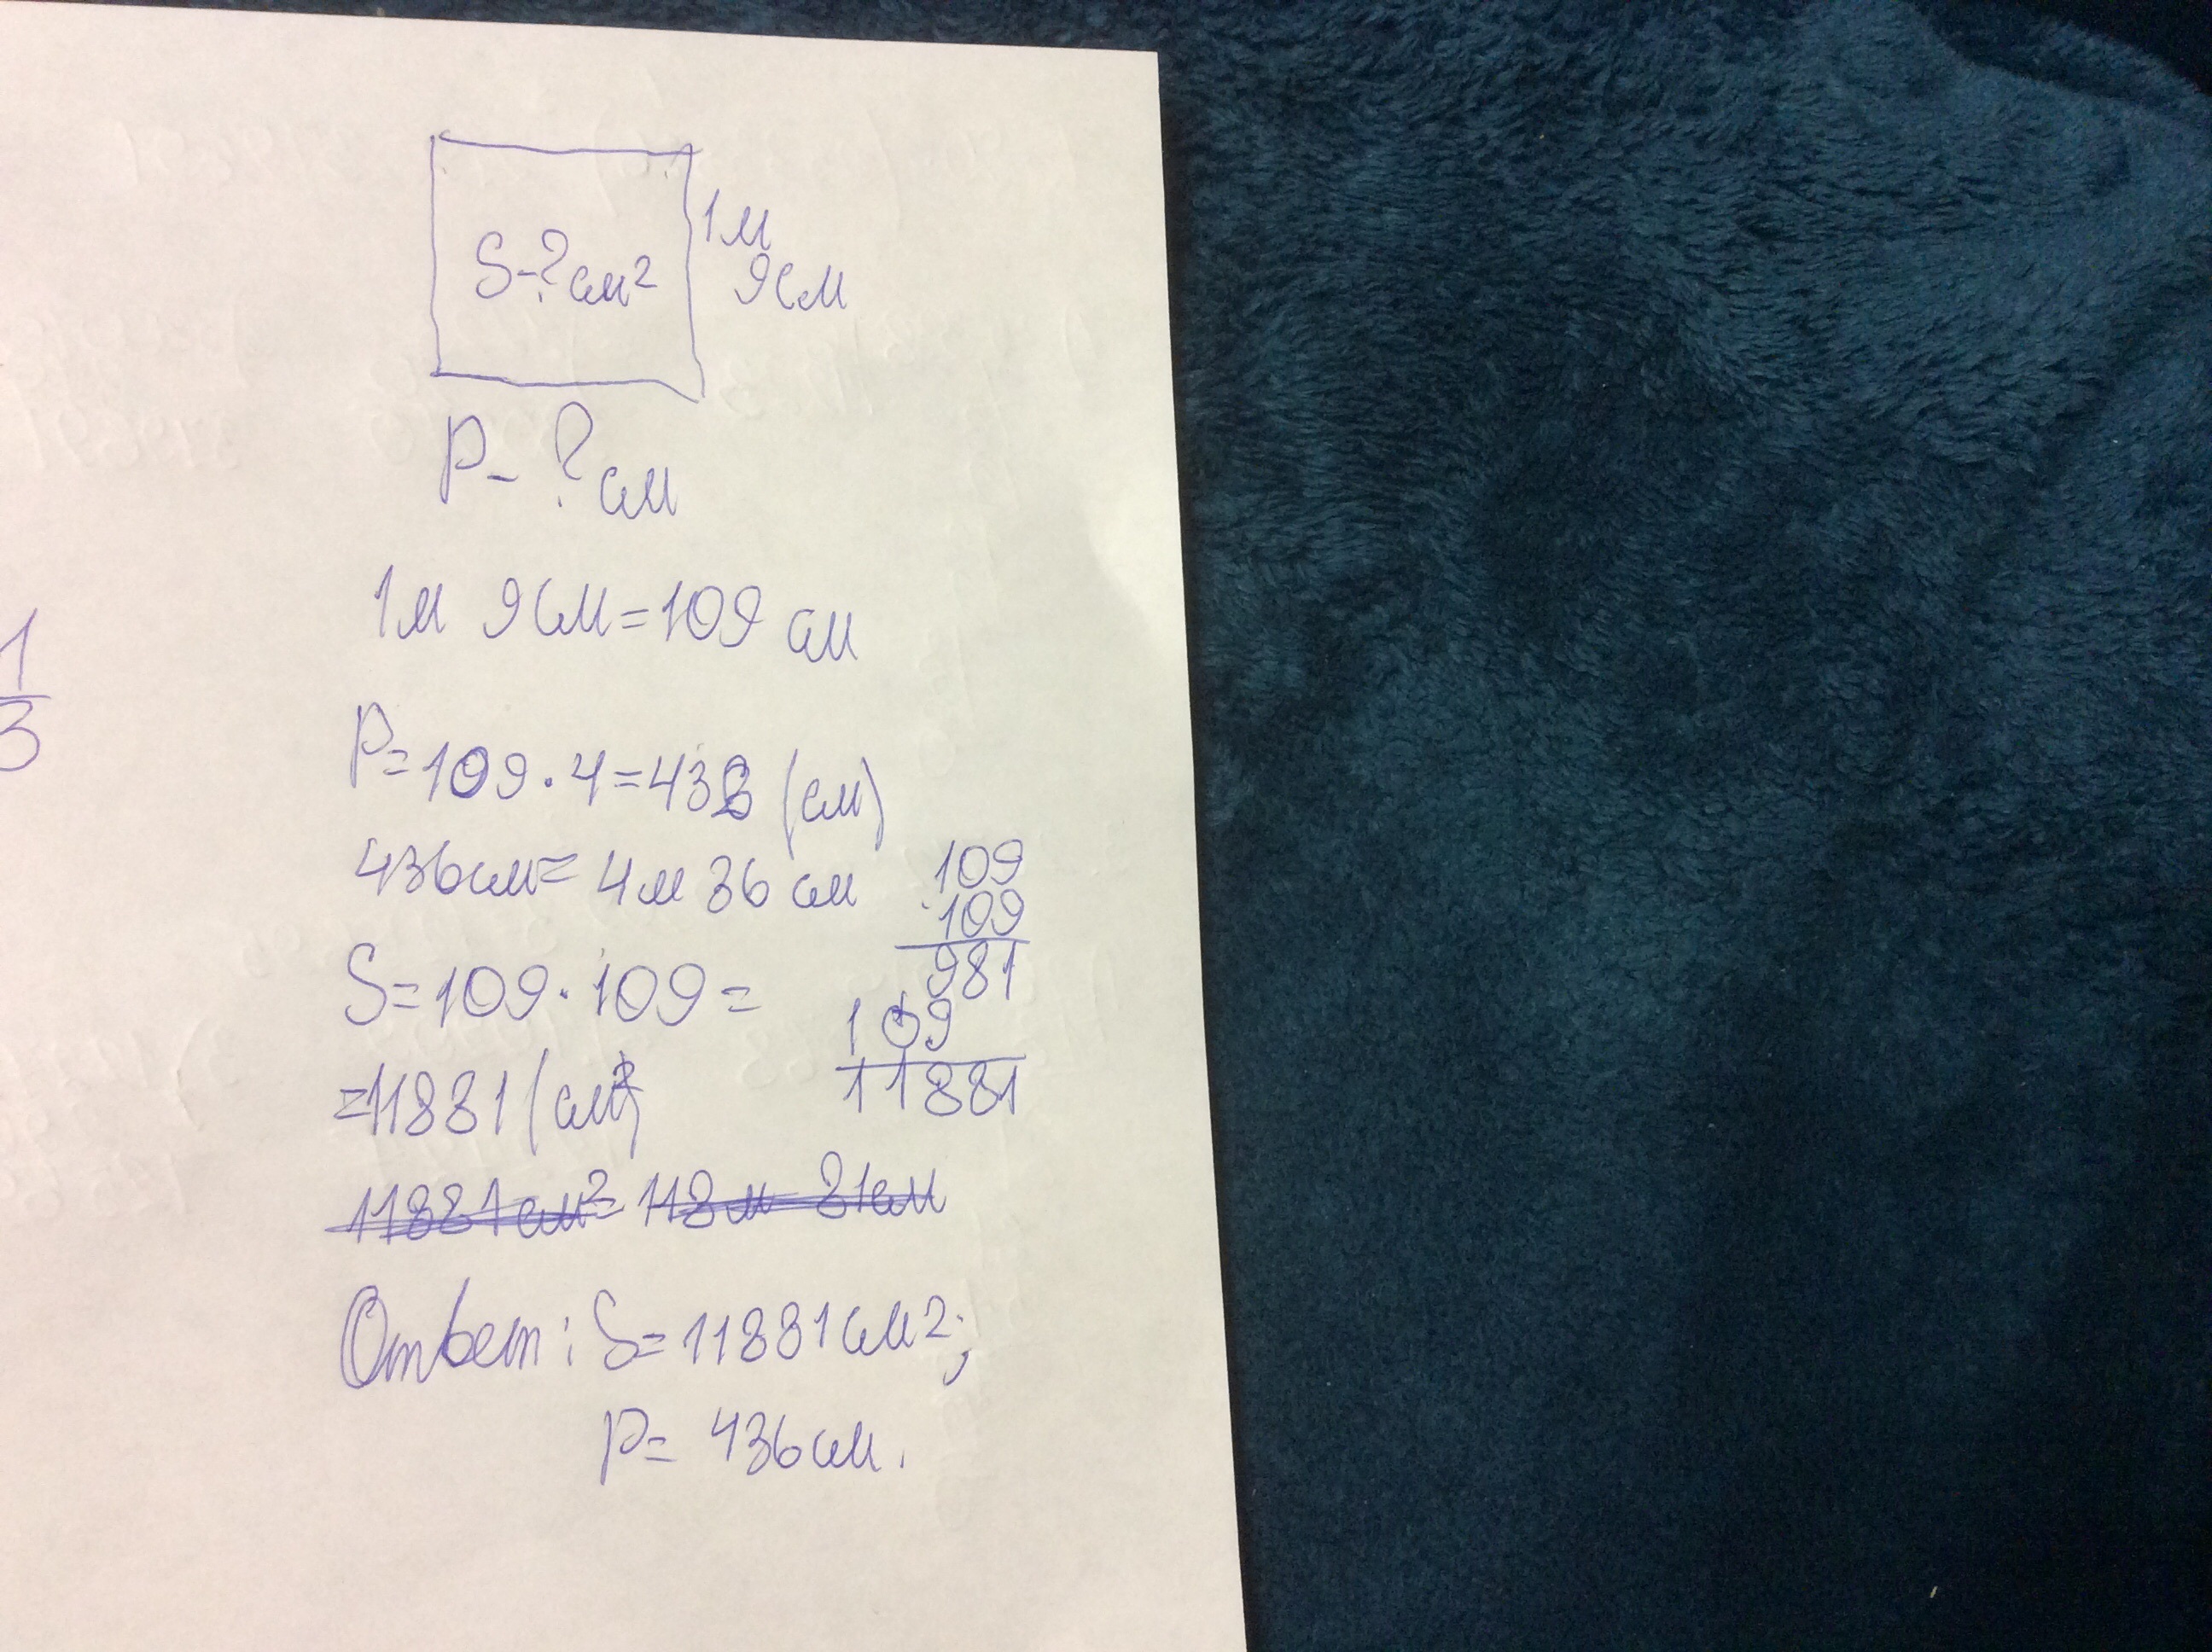 S-?см²
1м
9см
P- ?см
1м 9см=109 см
1
3
P=109·4=436 (см)
436см= 4м 36 см
109
·109
981
109
11881
S=109·109=
=11881 (см²)
11881см²= 118м 81см
Ответ: S=11881см²;
P= 436см.